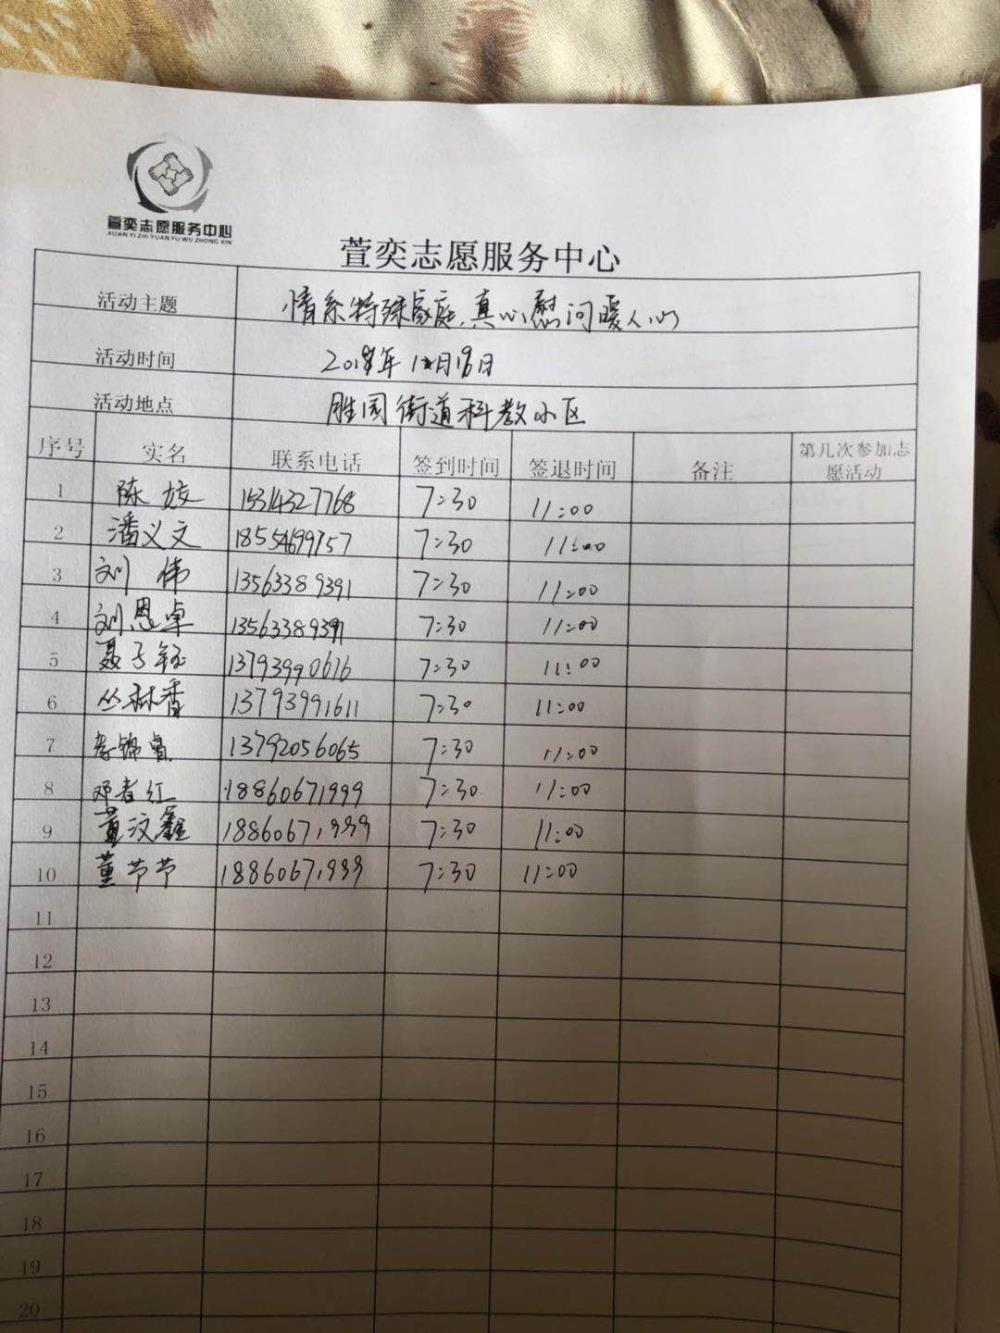 萱奕志愿服务中心
XUAN YI ZHI YUAN FU WU ZHONG XIN
萱奕志愿服务中心
活动主题 情系特殊家庭,真心慰问暖人心
活动时间 2018年 月 日
活动地点 胜园街道科教小区
序号 实名 联系电话 签到时间 签退时间 备注 第几次参加志
愿活动
1 陈 15314327768 7:30 11:00
2 潘义文 7:30 11:00
3 刘伟 13563389391 7:30 11:00
4 刘恩卓 7:30 11:00
5 聂子钰 13793990616 7:30 11:00
6 丛林香 13793991611 7:30 11:00
7 李锦 13792056065 7:30 11:00
8 邓者红 18860671999 7:30 11:00
9 董汶鑫 18860671999 7:30 11:00
10 董芍芍 18860671999 7:30 11:00
11
12
13
14
15
16
17
18
19
20